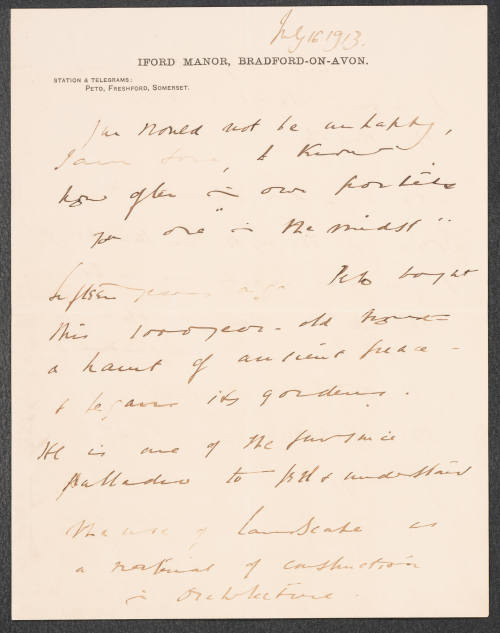 July 16 1913.
IFORD MANOR, BRADFORD-ON-AVON.
STATION & TELEGRAMS:
PETO, FRESHFORD, SOMERSET.
You would not be unhappy,
I am sure, to know
how often in our
you are "in the midst"
Fifteen years ago Peto bought
this 1000 year-old house
a haunt of ancient peace -
& began its gardens.
He is one of the few since
Palladio to feel & understand
the use of landscape as
a material of construction
in Architecture.